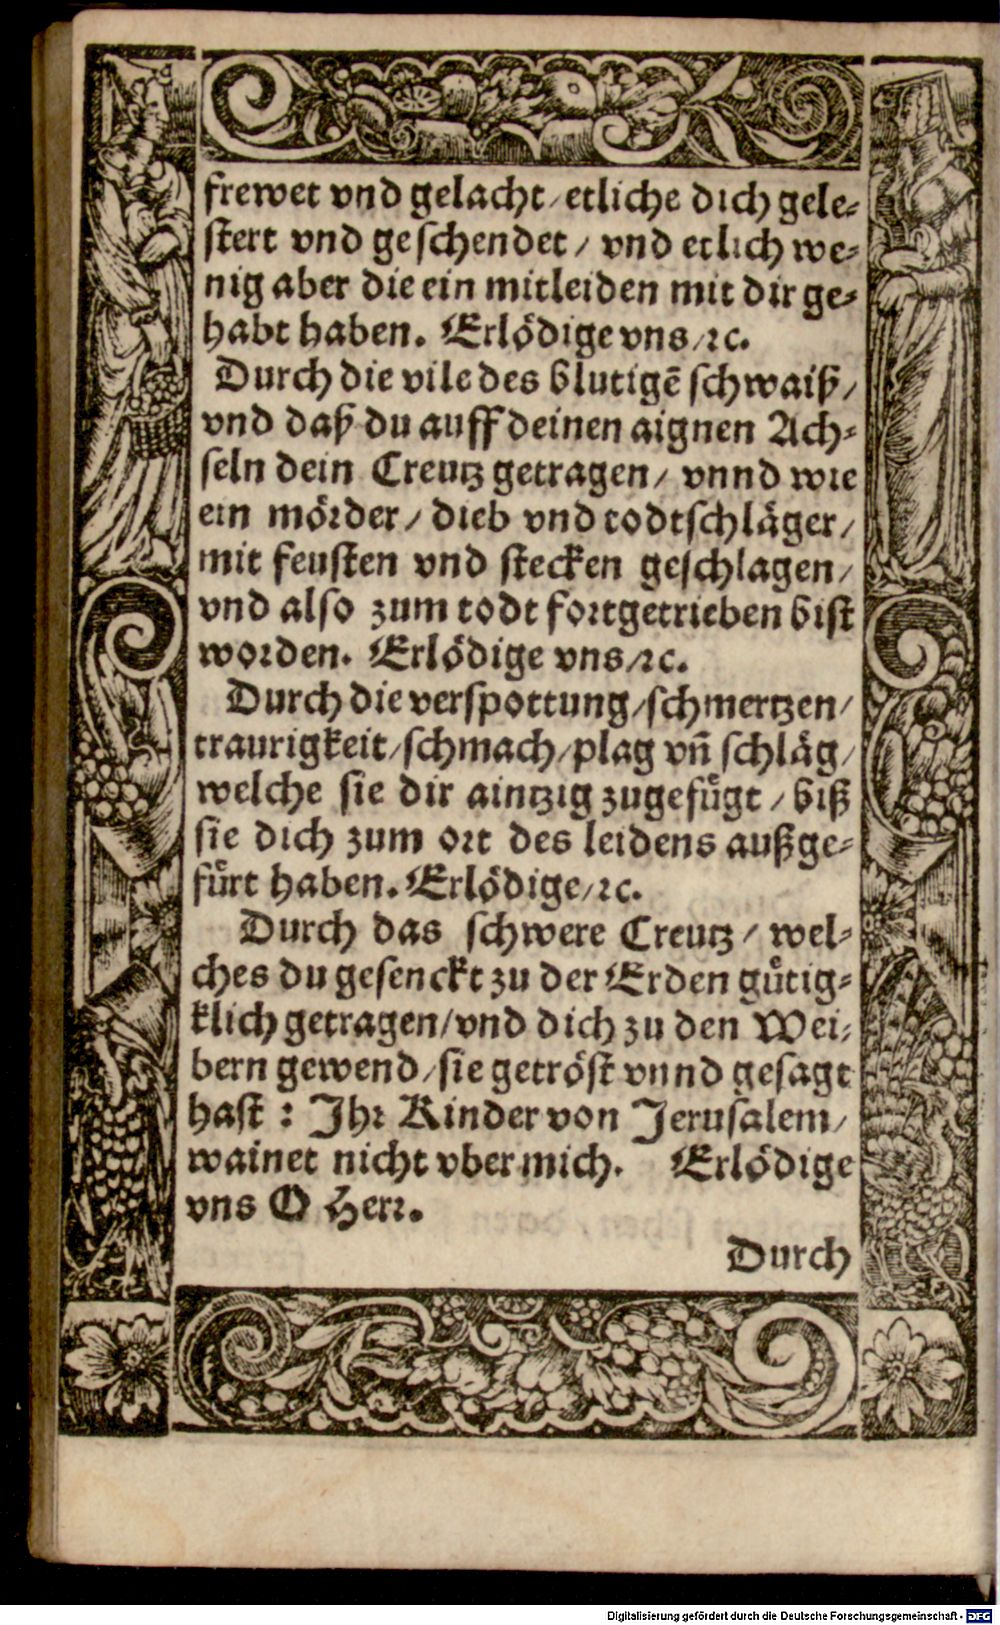 frewet vnd gelacht/ etliche dich gele-
stert vnd geschendet / vnd etlich we-
nig aber die ein mitleiden mit dir ge-
habt haben. Erlödige vns/ ꝛc.
Durch die vile des blutigē schwaiß/
vnd daß du auff deinen aignen Ach-
seln dein Creutz getragen/ vnnd wie
ein mörder/ dieb vnd todtschläger/
mit feusten vnd stecken geschlagen/
vnd also zum todt fortgetrieben bist
worden. Erlödige vns/ ꝛc.
Durch die verspottung/ schmertzen/
traurigkeit/ schmach/ plag vñ schläg/
welche sie dir aintzig zugefügt / biß
sie dich zum ort des leidens außge-
fürt haben. Erlödige/ ꝛc.
Durch das schwere Creutz/ wel-
ches du gesenckt zu der Erden gütig-
klich getragen/ vnd dich zu den Wei-
bern gewend/ sie getröst vnnd gesagt
hast : Ihr Kinder von Jerusalem/
wainet nicht vber mich. Erlödige
vns O Herr.
Durch
Digitalisierung gefördert durch die Deutsche Forschungsgemeinschaft - DFG